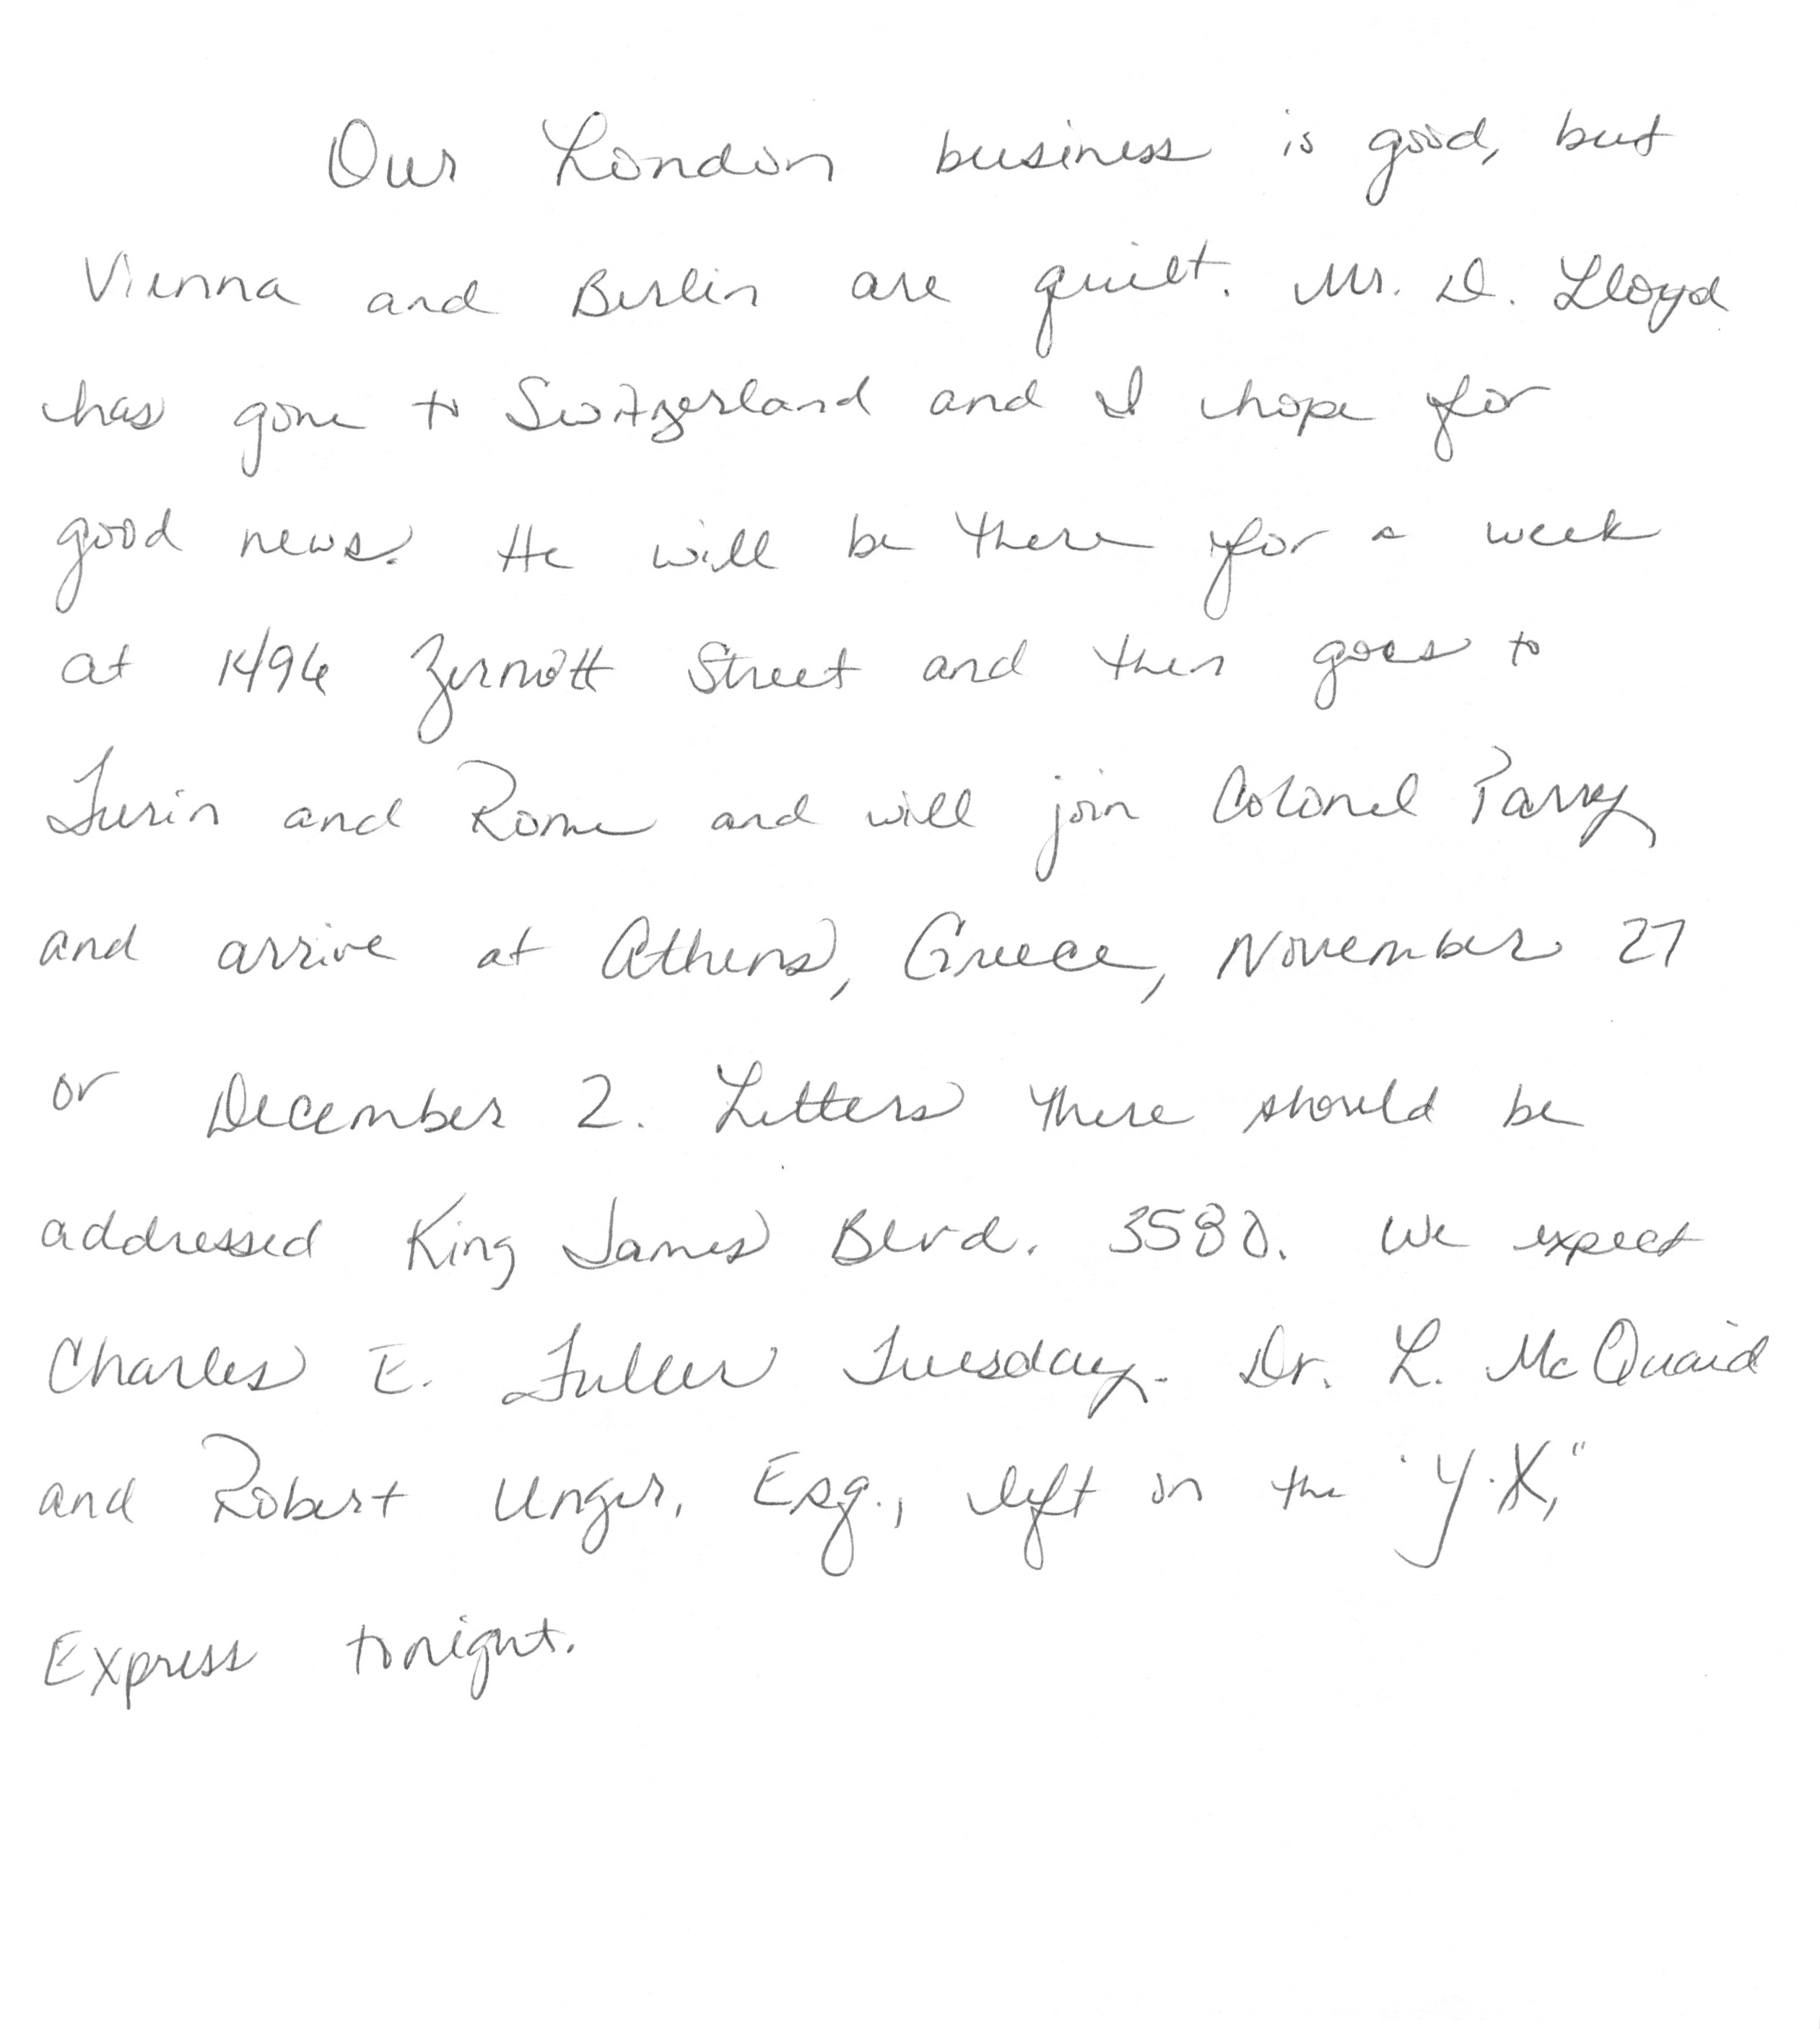 Our London business is good, but
Vienna and Berlin are quiet. Mr. D. Lloyd
has gone to Switzerland and I hope for
good news. He will be there for a week
at 1496 Zermott Street and then goes to
Turin and Rome and will join Colonel Parry
and arrive at Athens, Greece, November 27
or December 2. Letters there should be
addressed King James Blvd. 3580. We expect
Charles E. Fuller Tuesday. Dr. L. McQuaid
and Robert Unger, Esq., left in the "Y.X,"
Express tonight.